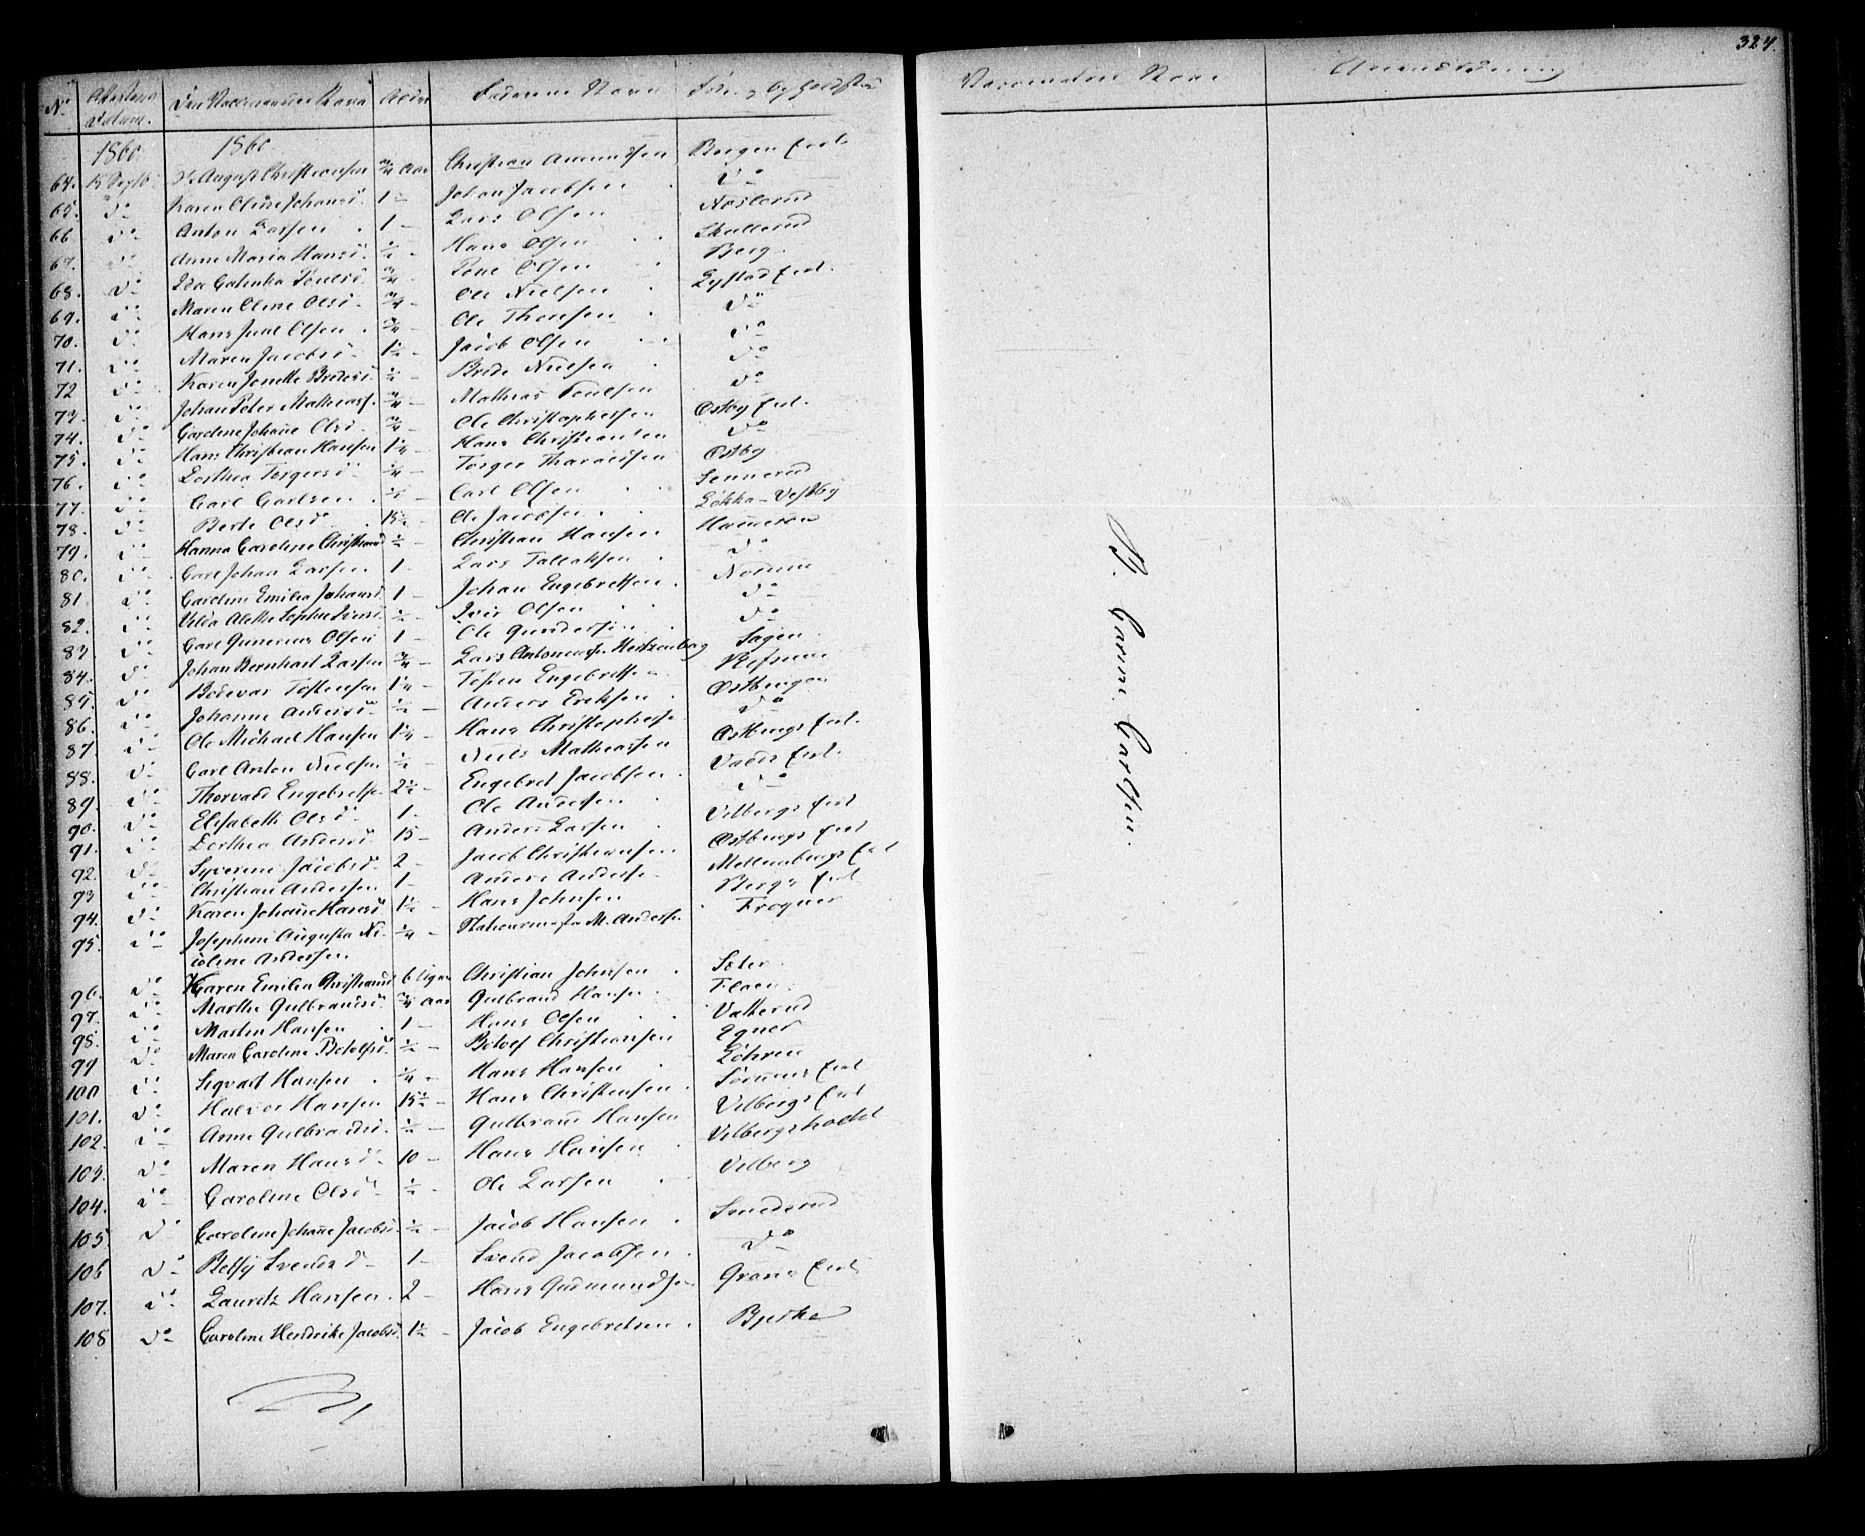 324.
No Attestens Datum. Den Vaccineredes Navn Alder Faderens Navn Føde- og Opholdsted Vaccinatørens Navn Anmærkning
1860 1860
64. 15 Septb. August Christiansen 3/4 Aar Christian Amundsen Bergen Eiet
65. do Karen Oline Johansd. 1 - Johan Jacobsen do
66. do Anton Larsen 1 - Lars Olsen Naslerud
67. do Anne Maria Hansd. 1/2 - Hans Olsen Skullerud
68. do Ida Cathinka Poulsd. 3/4 - Poul Olsen Berg
69. do Maren Oline Olsd. 3/4 - Ole Nielsen Lystad Eiet
70. do Hans Juul Olsen 3/4 - Ole Thoresen do
71. do Maren Jacobsd. 1 1/2 - Jacob Olsen do
72 do Karen Jonette Bredesd. 1/2 - Brede Nielsen do
73. do Johan Peter Mathiass. 3/4 - Mathias Poulsen do
74. do Caroline Johanne Olsd. 3/4 - Ole Christophersen Østby Eiet
75. do Hans Christian Hansen 1 1/4 - Hans Christiansen do
76. do Dorthea Torgersd. 1/4 - Torger Tharaldsen Østby
77. do Carl Carlsen 1/2 - Carl Olsen Sennerud
78. do Berte Olsd. 15 1/2 - Ole Jacobsen Løkka - Vestby
79. do Hanna Caroline Christiansd. 1/2 - Christian Hansen Hammeren
80. do Carl Johan Larsen 1 - Lars Tallaksen do
81 do Caroline Emilia Johansd. 1 - Johan Engebretsen Nordum
82. do Alette Sophie Iversd. 1/2 - Iver Olsen do
83. do Carl Gunerius Olsen 1 - Ole Gundersen do
84. do Johan Bernhart Larsen 3/4 - Lars Antonius Hertzenberg Sagen
85. do Bodevar Tostensen 1 1/4 - Tosten Engebretsen Refsum
86. do Johanne Andersd. 1/2 - Anders Eriksen Østbergen
87. do Ole Michael Hansen 1 1/4 - Hans Christophersen do
88. do Carl Anton Nielsen 1/2 - Niels Mathiassen Østbergs Eiet
89. do Thorvald Engebretsen 2 1/2 - Engebret Jacobsen Eiet
90. do Elisabeth Olsd. 1 - Ole Andersen do
91. do Dorthea Andersd. 15 - Anders Larsen Vilbergs Eiet
92. do Syverine Jacobsd. 2 - Jacob Christiansen Østbergs Eiet
93 do Christian Andersen 1 - Anders Andersen Mellembergs Eiet
94. do Karen Johanne Hansd. 1 1/2 - Hans Johnsen Bergs Eiet
95. do Josephine Augusta Ni-
coline Andersen 1/4 - Stationsmester M. Andersen Frogner
96. do Karen Emilia Christiansd. 6 Uger Christian Johnsen Sæter
97. do Marthe Gulbrandsd. 3/4 Aar Gulbrand Hansen Flaen
98. do Martin Hansen 1 - Hans Olsen Valterud
99 do Maren Caroline Botolfsd. 1/2 - Botolf Christiansen Egner
100 do Sigvart Hansen 1/4 - Hans Hansen Løhren
101. do Halvor Hansen 15 1/2 - Hans Christensen Eiet
102. do Anne Gulbrandsd. 1/2 - Gulbrand Hansen Vilbergs Eiet
103. do Maren Hansd. 10 - Hans Hansen
104. do Caroline Olsd. 1/2 - Ole Larsen Vilberg
105. do Caroline Johanne Jacobsd. 1/2 - Jacob Hansen Smedsrud
106 do Betsy Svendsd. 1 - Svend Jacobsen do
107. do Lauritz Hansen 2 - Hans Gudmundsen Eiet
108 do Caroline Hendrike Jacobsd. 1 1/2 - Jacob Engebretsen Bjerke
Carine Carlsen.